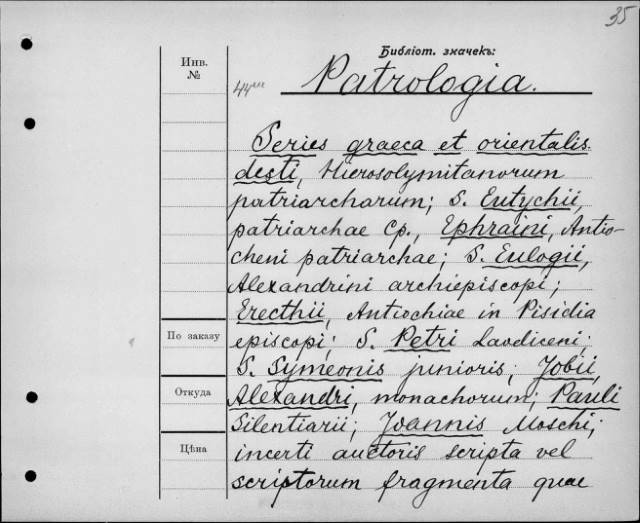 35
Библіот. значекъ:
Инв.
№
44
Patrologia.
Series graeca et orientalis.
desti, Hierosolymitanorum
patriarcharum; S. Eutychii,
patriarchae Cp., Ephraini, Antio-
cheni patriarchae; S. Eulogii,
Alexandrini archiepiscopi;
Erecthii, Antiochiae in Pisidia
По заказу
episcopi; S. Petri Laodiceni;
S. Symeonis junioris, Jobii,
Откуда
Alexandri, monachorum; Pauli
Silentiarii; Joannis Moschi;
Цѣна
incerti auctoris scripta vel
scriptorum fragmenta quae